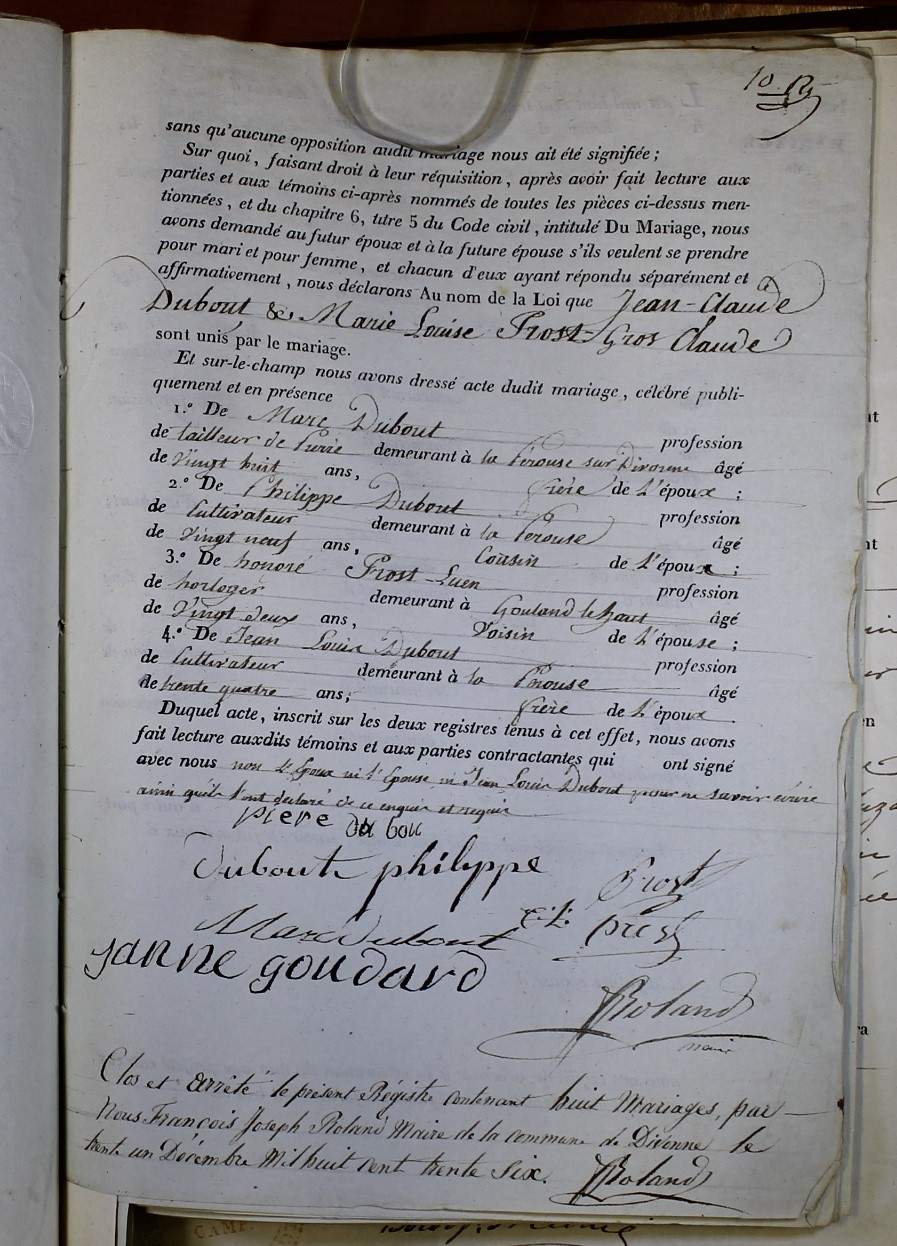 10.
sans qu'aucune opposition audit mariage nous ait été signifiée ;
Sur quoi, faisant droit à leur réquisition, après avoir fait lecture aux
parties et aux témoins ci-après nommés de toutes les pièces ci-dessus men-
tionnées, et du chapitre 6, titre 5 du Code civil, intitulé Du Mariage, nous
avons demandé au futur époux et à la future épouse s'ils veulent se prendre
pour mari et pour femme, et chacun d'eux ayant répondu séparément et
affirmativement, nous déclarons Au nom de la Loi que Jean-Claude
Dubout & Marie Louise Prost-Gros Claude
sont unis par le mariage.
Et sur-le-champ nous avons dressé acte dudit mariage, célébré publi-
quement et en présence
1.º De Marc Dubout profession
de tailleur de Pierre demeurant à la Pérouse sur Divonne âgé
de Vingt huit ans, frère de L'époux ;
2.º De Philippe Dubout profession
de Cultivateur demeurant à la Pérouse âgé
de Vingt neuf ans, Cousin de L'époux ;
3.º De honoré Prost-Luen profession
de horloger demeurant à Gouland le haut âgé
de Vingt deux ans, Voisin de L'épouse ;
4.º De Jean Louis Dubout profession
de Cultivateur demeurant à la Pérouse âgé
de trente quatre ans, frère de L'époux.
Duquel acte, inscrit sur les deux registres tenus à cet effet, nous avons
fait lecture auxdits témoins et aux parties contractantes qui ont signé
avec nous non L'Epoux ni L'Epouse ni Jean Louis Dubout pour ne savoir écrire
ainsi qu'ils l'ont déclaré de ce enquis et requis
piere du bou
Dubout philippe
Prost
Marc Dubout
janne goudard
Roland
maire
Clos et arrêté le présent Régistre contenant huit Mariages, par
Nous François Joseph Roland Maire de la commune de Divonne le
trente un Décembre Mil huit cent trente Six. Roland